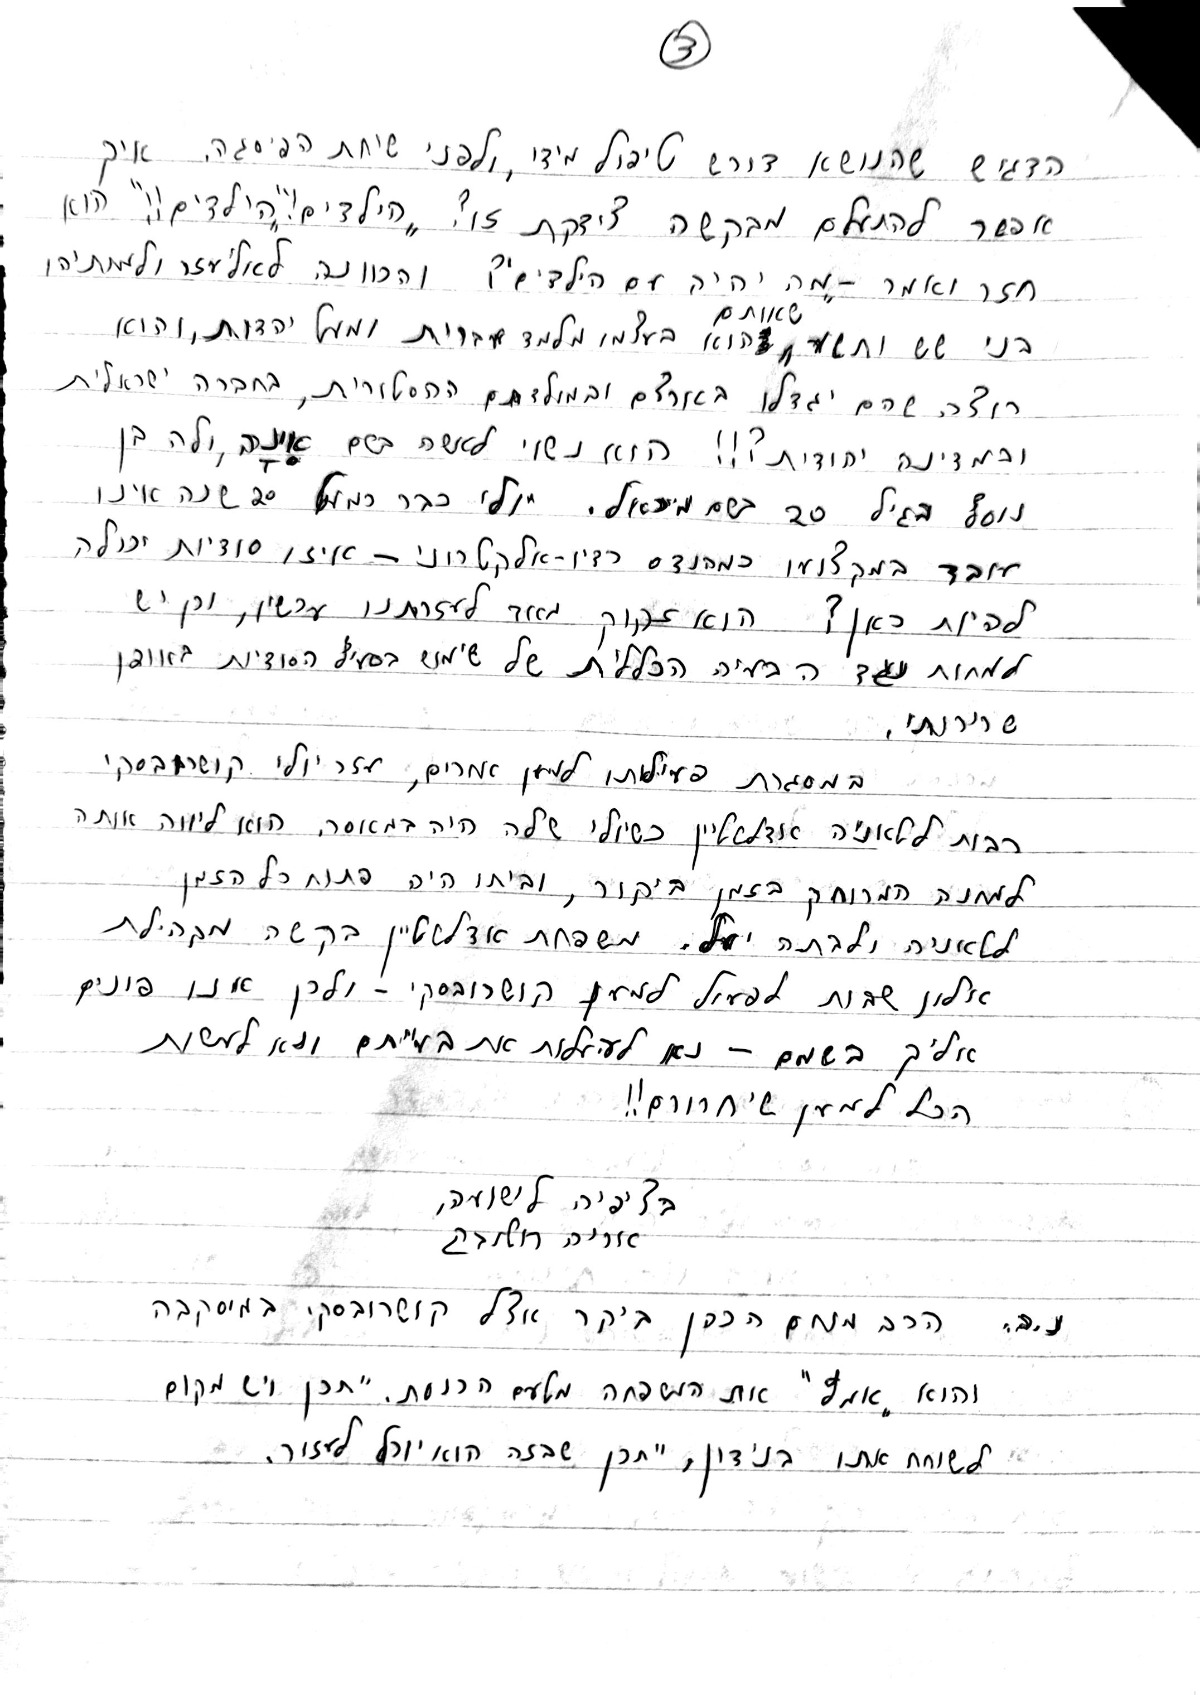 3
הדגיש שהנושא דורש טיפול מידי, ולפני שיחת הפיסגה. איך
אפשר להתעלם מבקשה צודקת זו? "הילדים!" "הילדים!!" הוא
חזר ואמר – "מה יהיה עם הילדים"? והכוונה לאליעזר ולמתתיהו
בני שש ותשע, שאותם הוא בעצמו מלמד עברית ומעט יהדות, והוא
רוצה שהם יגדלו בארצם ובמולדתם ההסטורית, בחברה ישראלית
ובמדינה יהודית?!! הוא נשוי לאשה בשם אינה, ולה בן
נוסף בגיל 20 בשם מיכאל. יולי כבר כמעט 20 שנה אינו
עובד במקצועו כמהנדס רדיו-אלקטרוני – איזו סודיות יכולה
להיות כאן? הוא זקוק מאד לעזרתנו עכשיו, וכן יש
למחות נגד הבעיה הכללית של שימוש בסעיף הסודיות באופן
שרירותי.
במסגרת פעילותו למען אחרים, עזר יולי קושרובסקי
רבות לטאניה אדלשטיין כשיולי שלה היה במאסר. הוא ליווה אותה
למחנה המרוחק בזמן ביקור, וביתו היה פתוח כל הזמן
לטאניה ולבתה יעל. משפחת אדלשטיין בקשה מקהילת
אלון שבות לפעול למען קושרובסקי – ולכן אנו פונים
אליך בשמם – נא להעלות את בעייתם ונא לעשות
הכל למען שיחרורם!!
בציפיה לישועה,
אריה רוטנברג
נ.ב. הרב מנחם הכהן ביקר אצל קושרובסקי במוסקבה
והוא "אמץ" את המשפחה מטעם הכנסת. יתכן ויש מקום
לשוחח אתו בנידון, יתכן שבזה הוא יוכל לעזור.